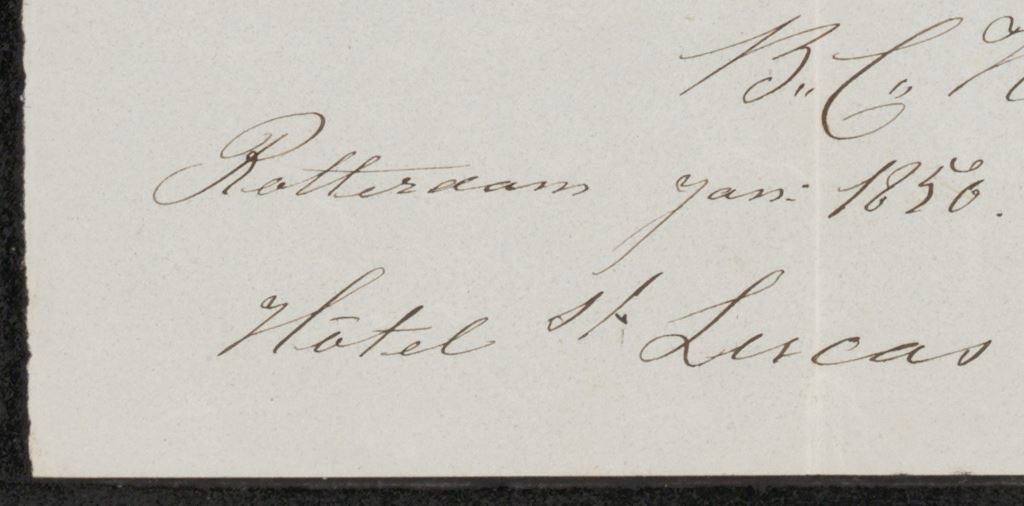 B. C.
Rotterdam jan: 1850.
Hôtel st. Lucas